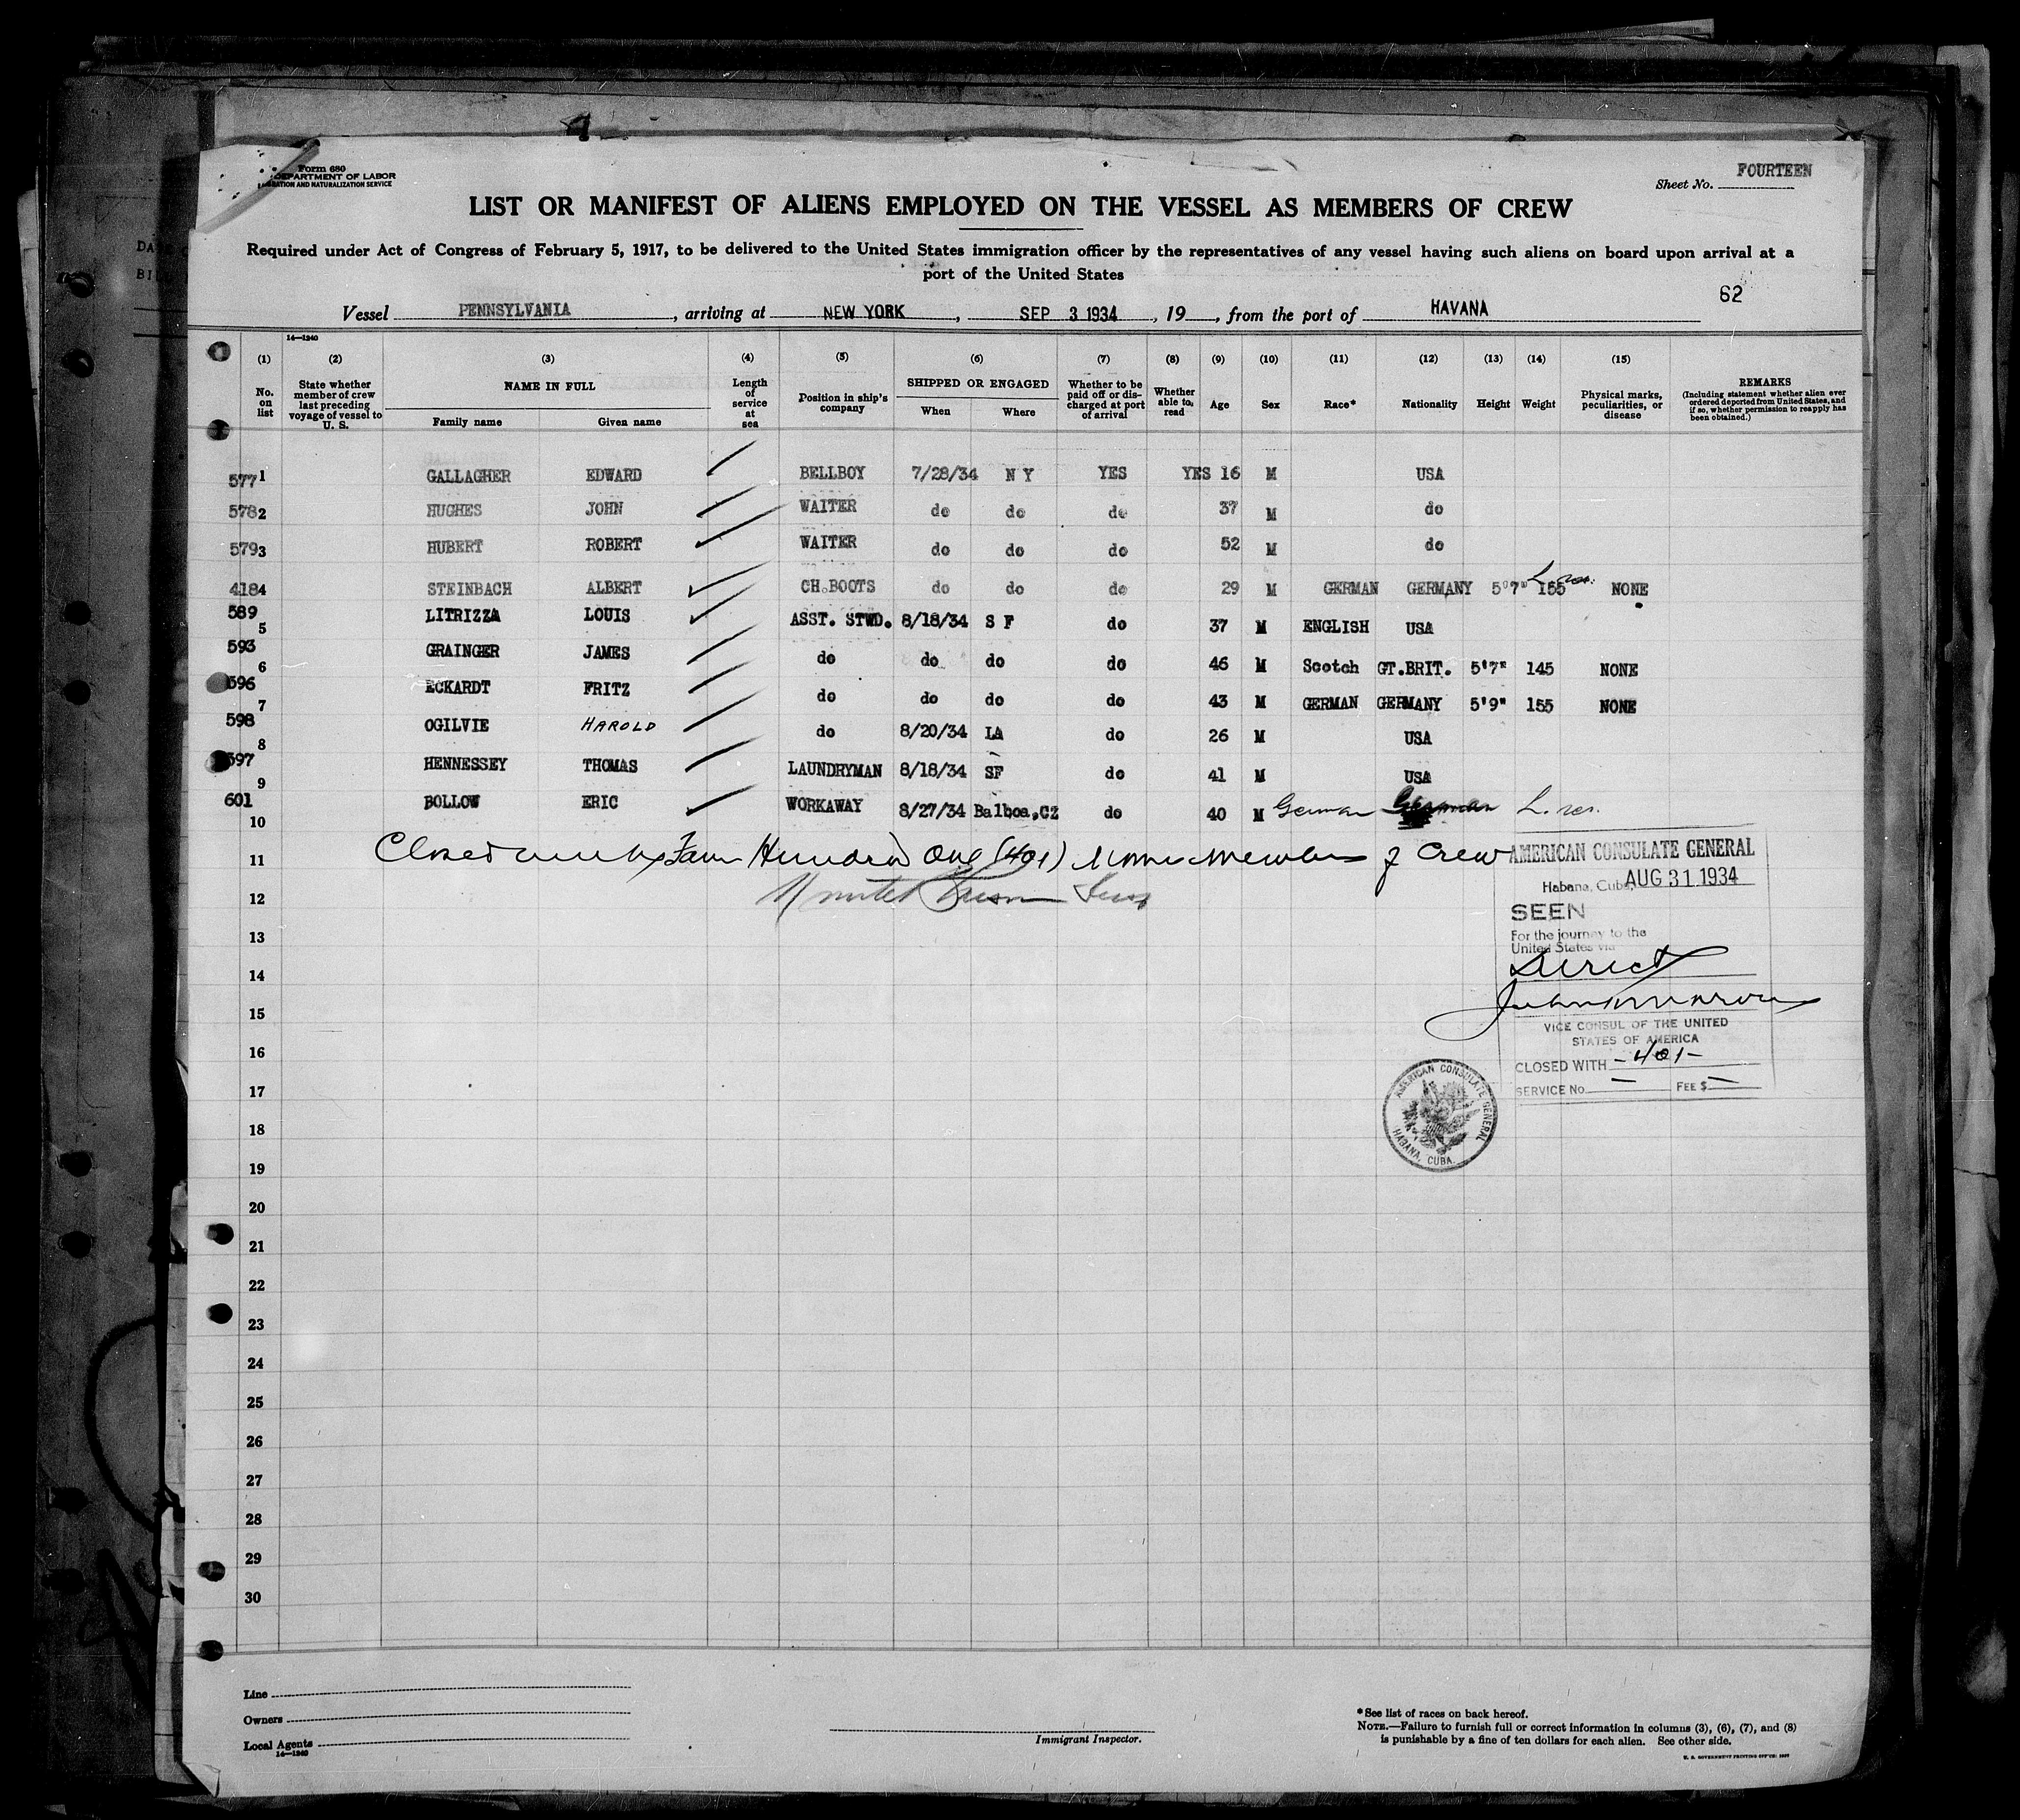 Form 680
DEPARTMENT OF LABOR
IMMIGRATION AND NATURALIZATION SERVICE
FOURTEEN
Sheet No.
LIST OR MANIFEST OF ALIENS EMPLOYED ON THE VESSEL AS MEMBERS OF CREW
Required under Act of Congress of February 5, 1917, to be delivered to the United States immigration officer by the representatives of any vessel having such aliens on board upon arrival at a
port of the United States
62
Vessel PENNSYLVANIA, arriving at NEW YORK, SEP 3 1934, 19, from the port of HAVANA
14—1240
(1) (2) (3) (4) (5) (6) (7) (8) (9) (10) (11) (12) (13) (14) (15)
No. on list
State whether member of crew last preceding voyage of vessel to U. S.
NAME IN FULL
Family name
Given name
Length of service at sea
Position in ship's company
SHIPPED OR ENGAGED
When
Where
Whether to be paid off or discharged at port of arrival
Whether able to read
Age
Sex
Race*
Nationality
Height
Weight
Physical marks, peculiarities, or disease
REMARKS
(Including statement whether alien ever ordered deported from United States, and if so, whether permission to reapply has been obtained.)
577 1 GALLAGHER EDWARD BELLBOY 7/28/34 N Y YES YES 16 M USA
578 2 HUGHES JOHN WAITER do do do 37 M do
579 3 HUBERT ROBERT WAITER do do do 52 M do
418 4 STEINBACH ALBERT CH.BOOTS do do do 29 M GERMAN GERMANY 5'7" 155 L. res. NONE
589 5 LITRIZZA LOUIS ASST. STWD. 8/18/34 S F do 37 M ENGLISH USA
593 6 GRAINGER JAMES do do do do 46 M Scotch GT.BRIT. 5'7" 145 NONE
596 7 ECKARDT FRITZ do do do do 43 M GERMAN GERMANY 5'9" 155 NONE
598 8 OGILVIE HAROLD do 8/20/34 LA do 26 M USA
597 9 HENNESSEY THOMAS LAUNDRYMAN 8/18/34 SF do 41 M USA
601 10 BOLLOW ERIC WORKAWAY 8/27/34 Balboa,CZ do 40 M German German L. res.
11 Closed with Four Hundred One (401) Members of Crew
12
13
14
15
16
17
18
19
20
21
22
23
24
25
26
27
28
29
30
AMERICAN CONSULATE GENERAL
Habana, Cuba, AUG 31 1934
SEEN
For the journey to the
United States via
Direct
VICE CONSUL OF THE UNITED
STATES OF AMERICA
CLOSED WITH - 401 -
SERVICE No. — FEE $ —
AMERICAN CONSULATE GENERAL
HABANA, CUBA.
Line
Owners
Local Agents
14—1240
Immigrant Inspector.
*See list of races on back hereof.
NOTE.—Failure to furnish full or correct information in columns (3), (6), (7), and (8)
is punishable by a fine of ten dollars for each alien. See other side.